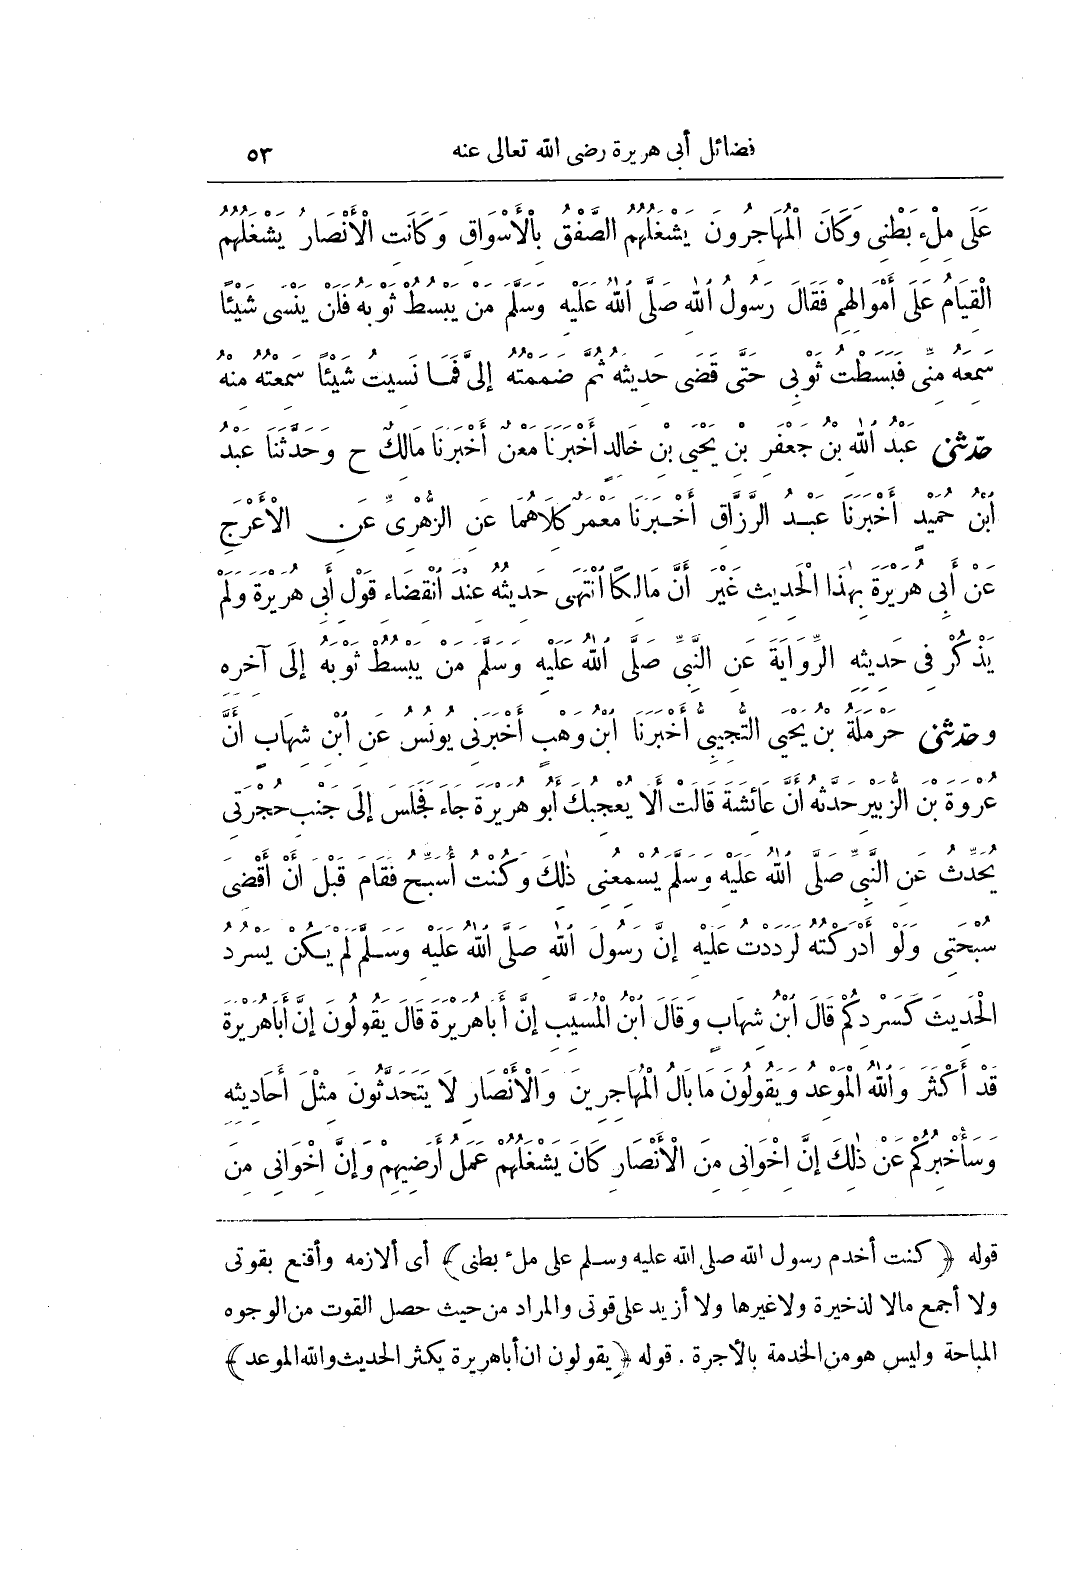 فضائل أبى هريرة رضى الله تعالى عنه ٥٣
عَلَى مِلْءِ بَطْنِى وَكَانَ الْمُهَاجِرُونَ يَشْغَلُهُمُ الصَّفْقُ بِالْأَسْوَاقِ وَكَانَتِ الْأَنْصَارُ يَشْغَلُهُمُ
الْقِيَامُ عَلَى أَمْوَالِهِمْ فَقَالَ رَسُولُ اللهِ صَلَّى اللهُ عَلَيْهِ وَسَلَّمَ مَنْ يَبْسُطْ ثَوْبَهُ فَلَنْ يَنْسَى شَيْئًا
سَمِعَهُ مِنِّى فَبَسَطْتُ ثَوْبِى حَتَّى قَضَى حَدِيثَهُ ثُمَّ ضَمَمْتُهُ إِلَىَّ فَمَا نَسِيتُ شَيْئًا سَمِعْتُهُ مِنْهُ
حَدَّثَنِى عَبْدُ اللهِ بْنُ جَعْفَرِ بْنِ يَحْيَى بْنِ خَالِدٍ أَخْبَرَنَا مَعْنٌ أَخْبَرَنَا مَالِكٌ ح وَحَدَّثَنَا عَبْدُ
ابْنُ حُمَيْدٍ أَخْبَرَنَا عَبْدُ الرَّزَّاقِ أَخْبَرَنَا مَعْمَرٌ كِلَاهُمَا عَنِ الزُّهْرِىِّ عَنِ الْأَعْرَجِ
عَنْ أَبِى هُرَيْرَةَ بِهٰذَا الْحَدِيثِ غَيْرَ أَنَّ مَالِكًا انْتَهَى حَدِيثُهُ عِنْدَ انْقِضَاءِ قَوْلِ أَبِى هُرَيْرَةَ وَلَمْ
يَذْكُرْ فِى حَدِيثِهِ الرِّوَايَةَ عَنِ النَّبِىِّ صَلَّى اللهُ عَلَيْهِ وَسَلَّمَ مَنْ يَبْسُطْ ثَوْبَهُ إِلَى آخِرِهِ
وحَدَّثَنِى حَرْمَلَةُ بْنُ يَحْيَى التُّجِيبِىُّ أَخْبَرَنَا ابْنُ وَهْبٍ أَخْبَرَنِى يُونُسُ عَنِ ابْنِ شِهَابٍ أَنَّ
عُرْوَةَ بْنَ الزُّبَيْرِ حَدَّثَهُ أَنَّ عَائِشَةَ قَالَتْ أَلَا يُعْجِبُكَ أَبُو هُرَيْرَةَ جَاءَ فَجَلَسَ إِلَى جَنْبِ حُجْرَتِى
يُحَدِّثُ عَنِ النَّبِىِّ صَلَّى اللهُ عَلَيْهِ وَسَلَّمَ يُسْمِعُنِى ذٰلِكَ وَكُنْتُ أُسَبِّحُ فَقَامَ قَبْلَ أَنْ أَقْضِىَ
سُبْحَتِى وَلَوْ أَدْرَكْتُهُ لَرَدَدْتُ عَلَيْهِ إِنَّ رَسُولَ اللهِ صَلَّى اللهُ عَلَيْهِ وَسَلَّمَ لَمْ يَكُنْ يَسْرُدُ
الْحَدِيثَ كَسَرْدِكُمْ قَالَ ابْنُ شِهَابٍ وَقَالَ ابْنُ الْمُسَيَّبِ إِنَّ أَبَا هُرَيْرَةَ قَالَ يَقُولُونَ إِنَّ أَبَا هُرَيْرَةَ
قَدْ أَكْثَرَ وَاللهُ الْمَوْعِدُ وَيَقُولُونَ مَا بَالُ الْمُهَاجِرِينَ وَالْأَنْصَارِ لَا يَتَحَدَّثُونَ مِثْلَ أَحَادِيثِهِ
وَسَأُخْبِرُكُمْ عَنْ ذٰلِكَ إِنَّ إِخْوَانِى مِنَ الْأَنْصَارِ كَانَ يَشْغَلُهُمْ عَمَلُ أَرَضِيهِمْ وَإِنَّ إِخْوَانِى مِنَ
قوله ﴿كنت أخدم رسول الله صلى الله عليه وسلم على ملء بطنى﴾ أى ألازمه وأقنع بقوتى
ولا أجمع مالا لذخيرة ولا غيرها ولا أزيد على قوتى والمراد من حيث حصل القوت من الوجوه
المباحة وليس هو من الخدمة بالأجرة . قوله ﴿يقولون ان أبا هريرة يكثر الحديث والله الموعد﴾